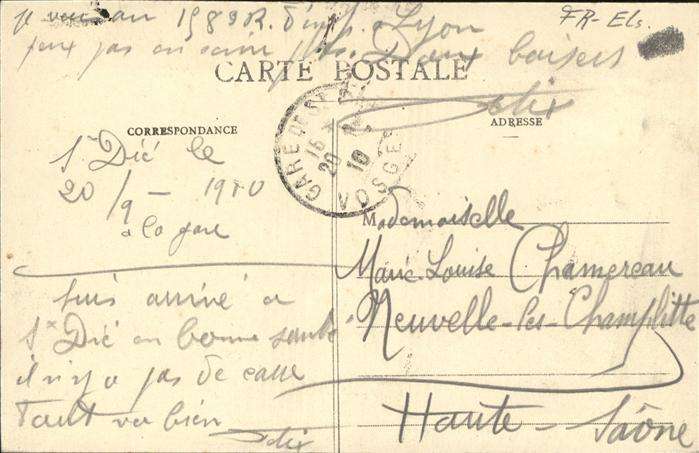 je vais au 158e R. d'inf. à Lyon
peux pas en savoir plus. Doux baisers
FR-Els.
CARTE POSTALE
CORRESPONDANCE
ADRESSE
GARE DE ST DIÉ
16
20 9
10
VOSGES
St Dié le
20/9 - 1910
à la gare
Suis arrivé à
St Dié en bonne santé
il n'y a pas de casse
Tout va bien
Mademoiselle
Marie Louise Chamereau
Neuvelle-les-Champlitte
Haute-Saône